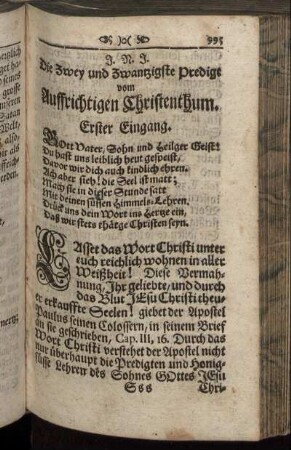 995
J. N. J.
Die Zwey und Zwantzigste Predigt
vom
Auffrichtigen Christenthum.
Erster Eingang.
GOtt Vater, Sohn und Heilger Geist!
Du hast uns leiblich heut gespeist,
Davor wir dich auch kindlich ehren.
Ach aber sieh! die Seel ist matt;
Mach sie in dieser Stunde satt
Mit deinen süssen Himmels-Lehren.
Drück uns dein Wort ins Hertze ein,
Daß wir stets thätge Christen seyn.
LAsset das Wort Christi unter
euch reichlich wohnen in aller
Weißheit! Diese Vermah-
nung, Ihr geliebte, und durch
das Blut JEsu Christi theu-
er erkauffte Seelen! giebet der Apostel
Paulus seinen Colossern, in seinem Brief
an sie geschrieben, Cap. III, 16. Durch das
Wort Christi verstehet der Apostel nicht
nur überhaupt die Predigten und Honig-
süsse Lehren des Sohnes GOttes JEsu
Sss Chri-